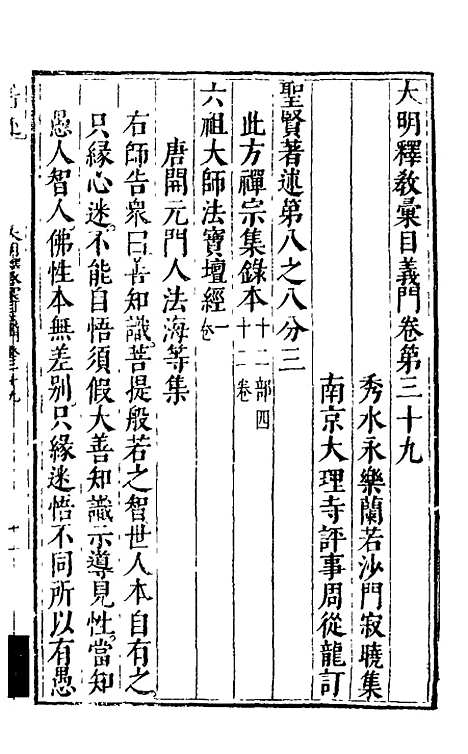 大明釋教彙目義門卷第三十九
秀水永樂蘭若沙門寂曉集
南京大理寺評事周從龍訂
聖賢著述第八之八分三
此方禪宗集錄本十二部四十二卷
六祖大師法寶壇經一卷
唐開元門人法海等集
右師告衆曰善知識菩提般若之智世人本自有之
只緣心迷不能自悟須假大善知識示導見性當知
愚人智人佛性本無差別只緣迷悟不同所以有愚